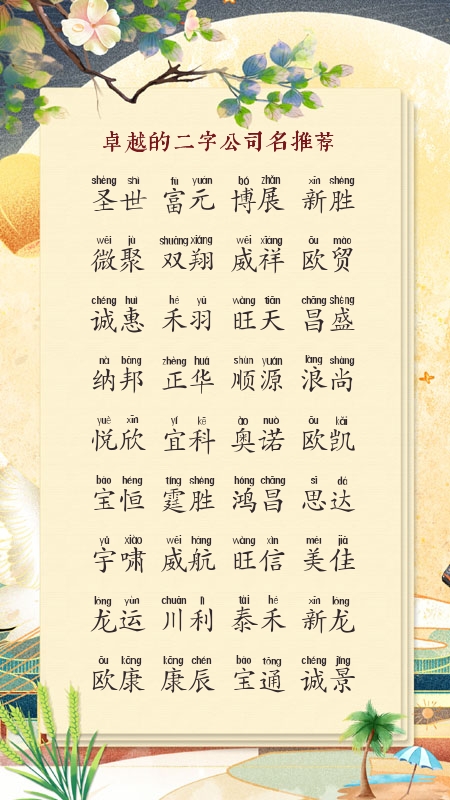 卓越的二字公司名推荐
shèng shì fù yuán bó zhǎn xīn shèng
圣世 富元 博展 新胜
wēi jù shuāng xiáng wēi xiáng ōu mào
微聚 双翔 威祥 欧贸
chéng huì hé yǔ wàng tiān chāng shèng
诚惠 禾羽 旺天 昌盛
nà bāng zhèng huá shùn yuán làng shàng
纳邦 正华 顺源 浪尚
yuè xīn yí kē ào nuò ōu kǎi
悦欣 宜科 奥诺 欧凯
bǎo héng tíng shèng hóng chāng sī dá
宝恒 霆胜 鸿昌 思达
yǔ xiào wēi háng wàng xìn měi jiā
宇啸 威航 旺信 美佳
lóng yùn chuān lì tài hé xīn lóng
龙运 川利 泰禾 新龙
ōu kāng kāng chén bǎo tōng chéng jǐng
欧康 康辰 宝通 诚景